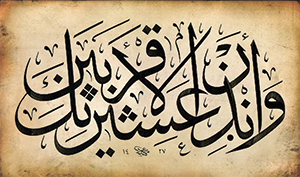 وأنذر عشيرتك الأقربين
١٤٢٧